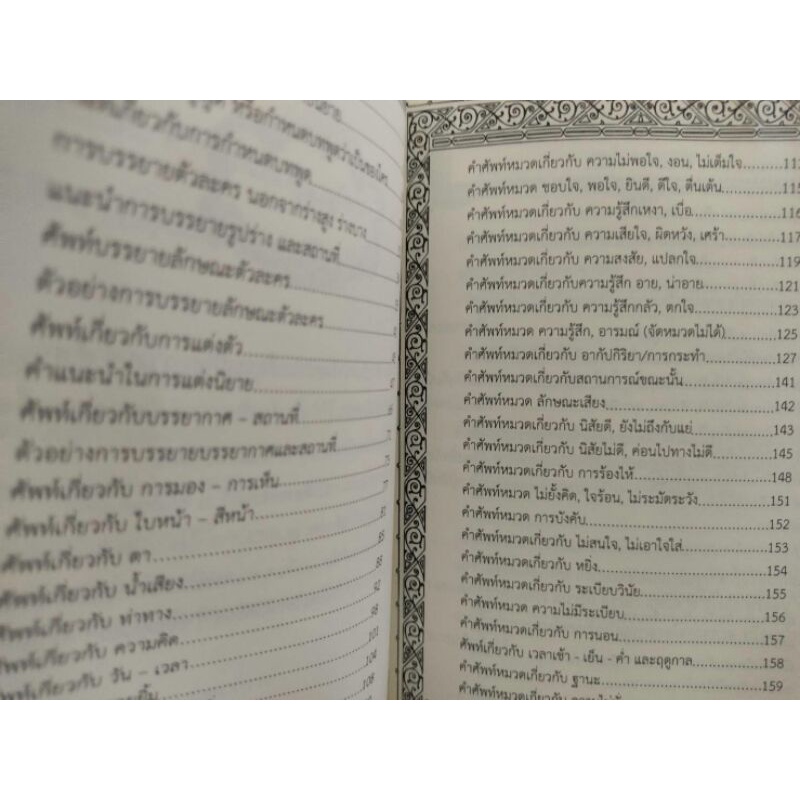 หรือกำหนดบทพูดว่าเป็นของใคร
เกี่ยวกับการกำหนดบทพูด
การบรรยายตัวละคร นอกจากร่างสูง ร่างบาง
แนะนำการบรรยายรูปร่าง และสถานที่
ศัพท์บรรยายลักษณะตัวละคร
ตัวอย่างการบรรยายลักษณะตัวละคร
ศัพท์เกี่ยวกับการแต่งตัว
คำแนะนำในการแต่งนิยาย
ศัพท์เกี่ยวกับบรรยากาศ – สถานที่
ตัวอย่างการบรรยายบรรยากาศและสถานที่
ศัพท์เกี่ยวกับ การมอง – การเห็น
ศัพท์เกี่ยวกับ ใบหน้า – สีหน้า
ศัพท์เกี่ยวกับ ตา
ศัพท์เกี่ยวกับ น้ำเสียง
ศัพท์เกี่ยวกับ ท่าทาง
ศัพท์เกี่ยวกับ ความคิด
ศัพท์เกี่ยวกับ วัน – เวลา
คำศัพท์หมวดเกี่ยวกับ ความไม่พอใจ, งอน, ไม่เต็มใจ
คำศัพท์หมวด ชอบใจ, พอใจ, ยินดี, ดีใจ, ตื่นเต้น 115
คำศัพท์หมวดเกี่ยวกับ ความรู้สึกเหงา, เบื่อ 116
คำศัพท์หมวดเกี่ยวกับ ความเสียใจ, ผิดหวัง, เศร้า 117
คำศัพท์หมวดเกี่ยวกับ ความสงสัย, แปลกใจ 119
คำศัพท์หมวดเกี่ยวกับความรู้สึก อาย, น่าอาย 121
คำศัพท์หมวดเกี่ยวกับ ความรู้สึกกลัว, ตกใจ 123
คำศัพท์หมวด ความรู้สึก, อารมณ์ (จัดหมวดไม่ได้) 125
คำศัพท์หมวดเกี่ยวกับ อากัปกิริยา/การกระทำ 127
คำศัพท์หมวดเกี่ยวกับสถานการณ์ขณะนั้น 141
คำศัพท์หมวด ลักษณะเสียง 142
คำศัพท์หมวดเกี่ยวกับ นิสัยดี, ยังไม่ถึงกับแย่ 143
คำศัพท์หมวดเกี่ยวกับ นิสัยไม่ดี, ค่อนไปทางไม่ดี 145
คำศัพท์หมวดเกี่ยวกับ การร้องไห้ 148
คำศัพท์หมวด ไม่ยั้งคิด, ใจร้อน, ไม่ระมัดระวัง 151
คำศัพท์หมวด การบังคับ 152
คำศัพท์หมวดเกี่ยวกับ ไม่สนใจ, ไม่เอาใจใส่ 153
คำศัพท์หมวดเกี่ยวกับ หยิ่ง 154
คำศัพท์หมวดเกี่ยวกับ ระเบียบวินัย 155
คำศัพท์หมวด ความไม่มีระเบียบ 156
คำศัพท์หมวดเกี่ยวกับ การนอน 157
ศัพท์เกี่ยวกับ เวลาเช้า - เย็น - ค่ำ และฤดูกาล 158
คำศัพท์หมวดเกี่ยวกับ ฐานะ 159
คำศัพท์หมวดเกี่ยวกับ